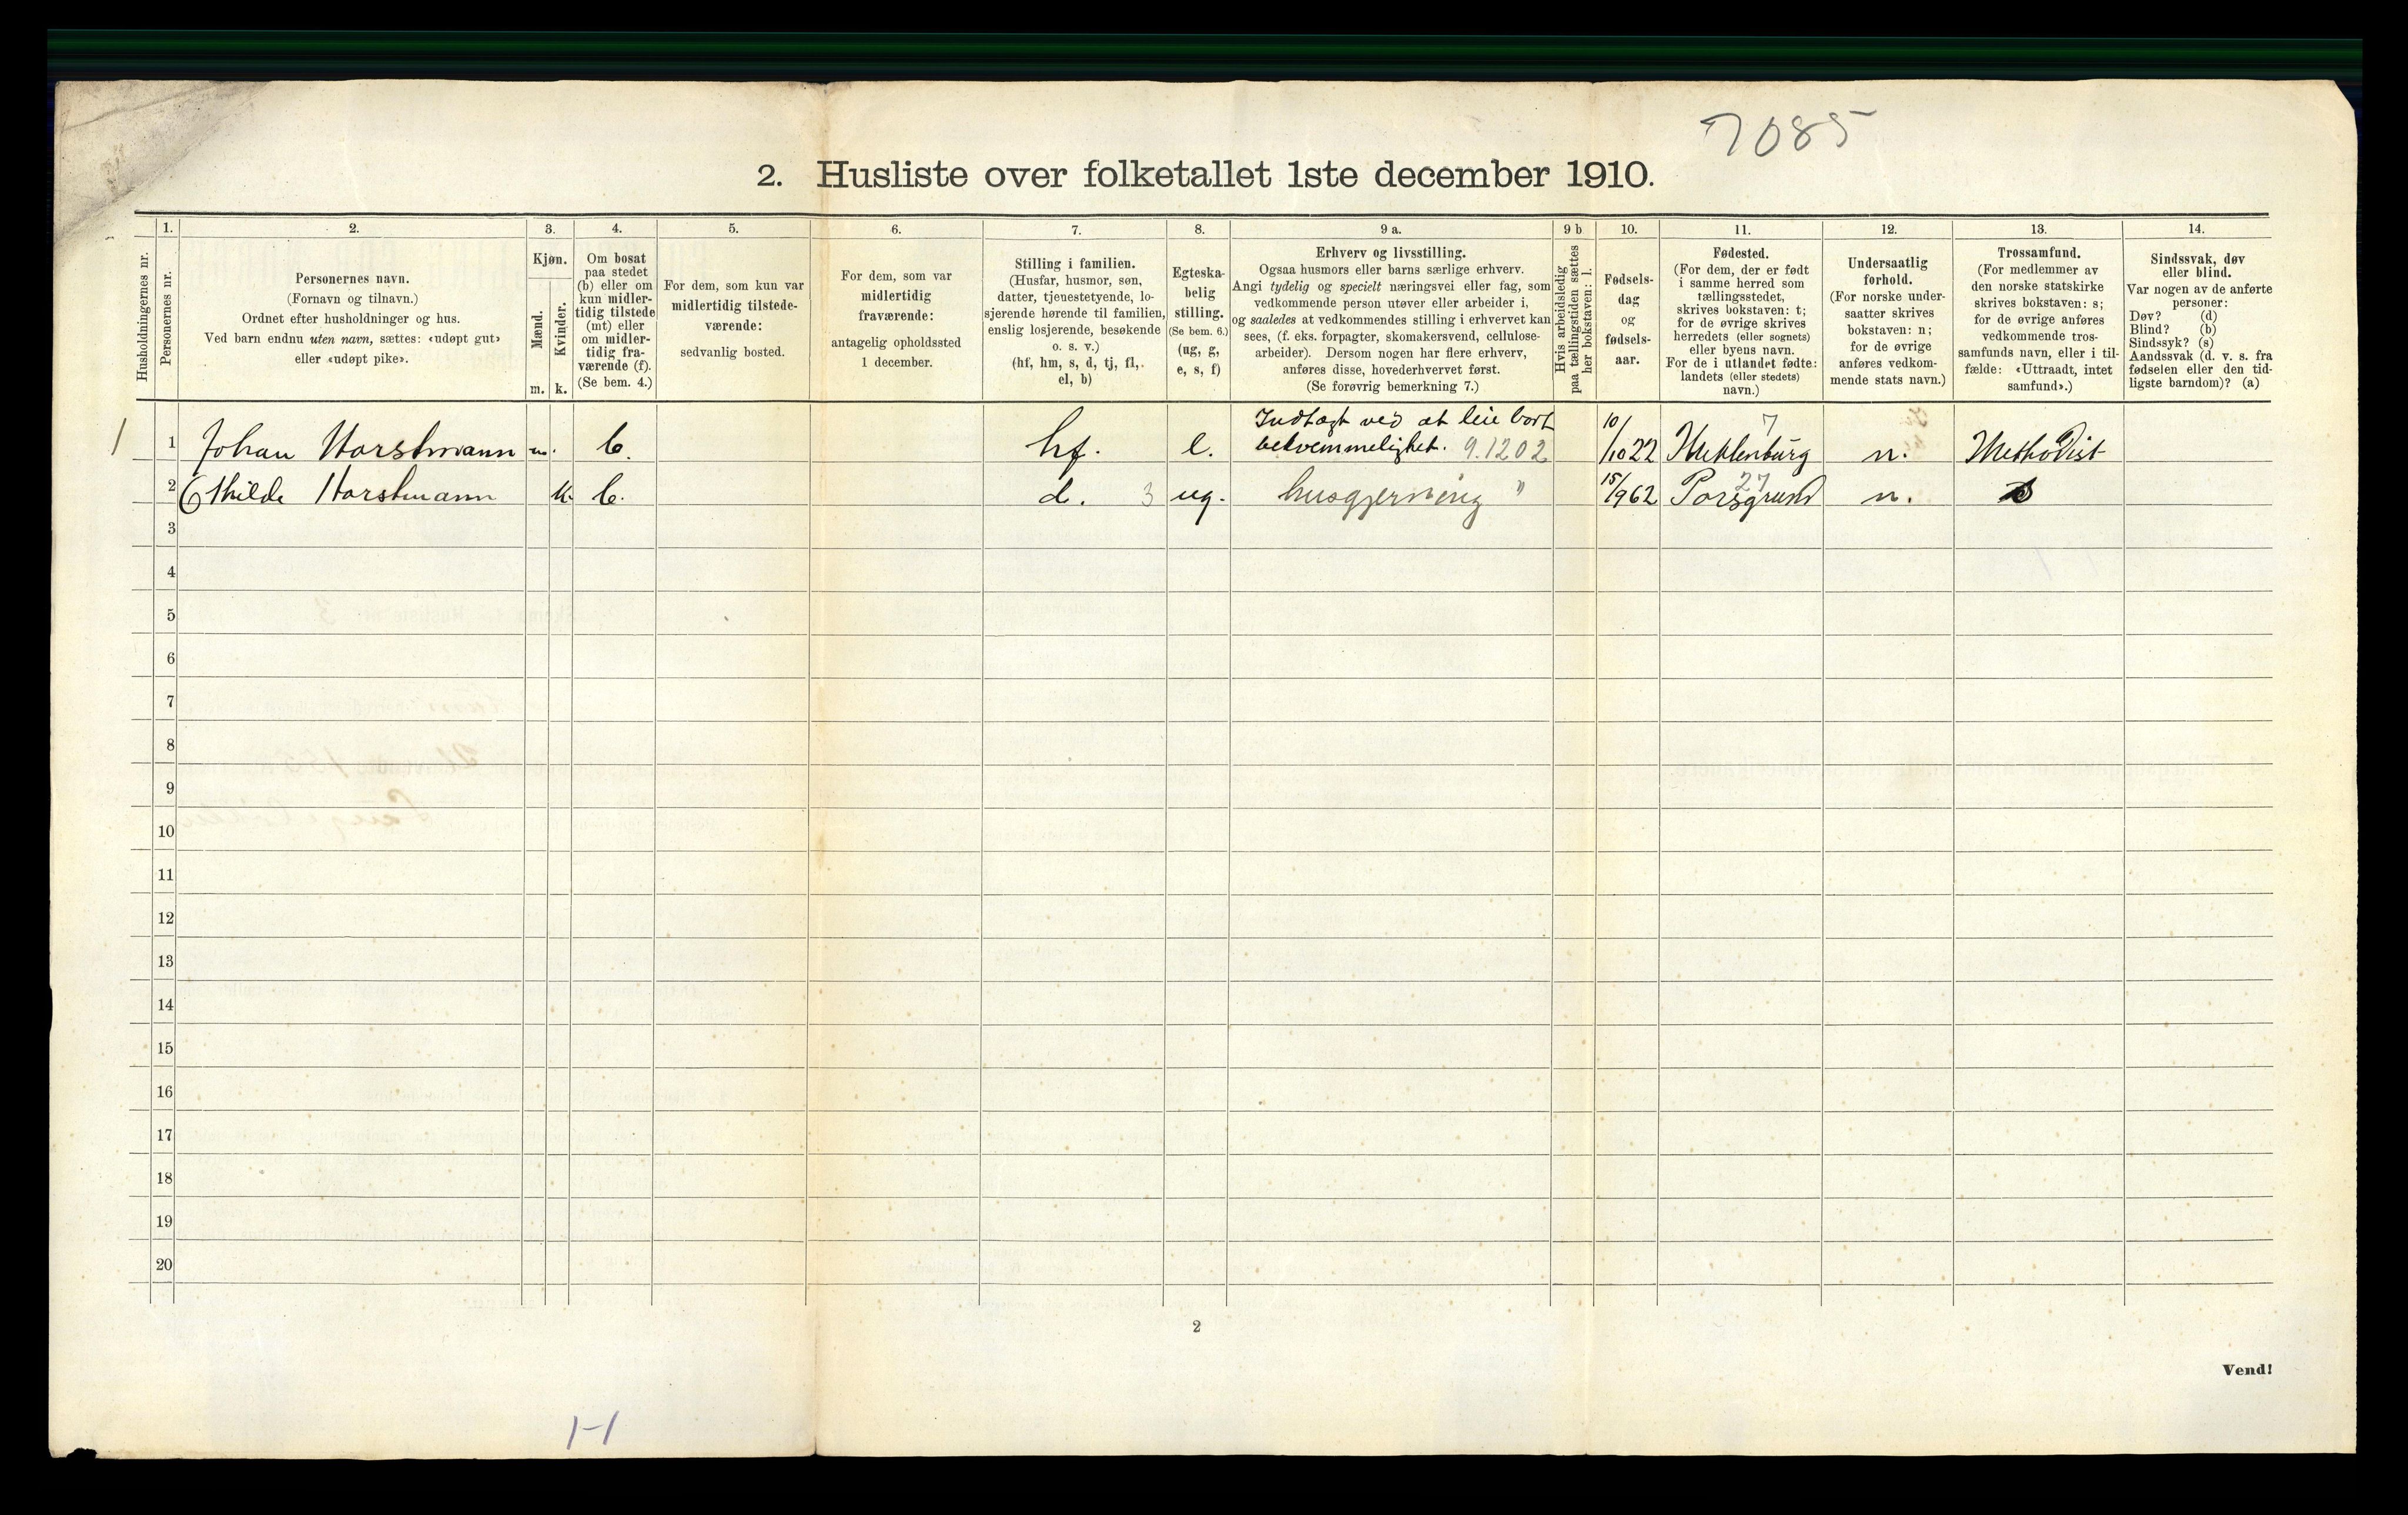 7085
2. Husliste over folketallet 1ste december 1910.
Husholdningernes nr.
1.
Personernes nr.
2.
Personernes navn.
(Fornavn og tilnavn.)
Ordnet efter husholdninger og hus.
Ved barn endnu uten navn, sættes: «udøpt gut»
eller «udøpt pike».
3.
Kjøn.
Mænd.
Kvinder.
m. k.
4.
Om bosat
paa stedet
(b) eller om
kun midler-
tidig tilstede
(mt) eller
om midler-
tidig fra-
værende (f).
(Se bem. 4.)
5.
For dem, som kun var
midlertidig tilstede-
værende:
sedvanlig bosted.
6.
For dem, som var
midlertidig
fraværende:
antagelig opholdssted
1 december.
7.
Stilling i familien.
(Husfar, husmor, søn,
datter, tjenestetyende, lo-
sjerende hørende til familien,
enslig losjerende, besøkende
o. s. v.)
(hf, hm, s, d, tj, fl,
el, b)
8.
Egteska-
belig
stilling.
(Se bem. 6.)
(ug, g,
e, s, f)
9 a.
Erhverv og livsstilling.
Ogsaa husmors eller barns særlige erhverv.
Angi tydelig og specielt næringsvei eller fag, som
vedkommende person utøver eller arbeider i,
og saaledes at vedkommendes stilling i erhvervet kan
sees, (f. eks. forpagter, skomakersvend, cellulose-
arbeider). Dersom nogen har flere erhverv,
anføres disse, hovederhvervet først.
(Se forøvrig bemerkning 7.)
9 b
Hvis arbeidsledig
paa tællingstiden sættes
her bokstaven: l.
10.
Fødsels-
dag
og
fødsels-
aar.
11.
Fødested.
(For dem, der er født
i samme herred som
tællingsstedet,
skrives bokstaven: t;
for de øvrige skrives
herredets (eller sognets)
eller byens navn.
For de i utlandet fødte:
landets (eller stedets)
navn.)
12.
Undersaatlig
forhold.
(For norske under-
saatter skrives
bokstaven: n;
for de øvrige
anføres vedkom-
mende stats navn.)
13.
Trossamfund.
(For medlemmer av
den norske statskirke
skrives bokstaven: s;
for de øvrige anføres
vedkommende tros-
samfunds navn, eller i til-
fælde: «Uttraadt, intet
samfund».)
14.
Sindssvak, døv
eller blind.
Var nogen av de anførte
personer:
Døv? (d)
Blind? (b)
Sindssyk? (s)
Aandssvak (d. v. s. fra
fødselen eller den tid-
ligste barndom)? (a)
1 1 Johan Horstmann m. b. hf. e. Indtægt ved at leie bort bekvemmelighet. 9.1202 10/10 22 Meklenburg 7 n. Methodist
2 Thilda Horstmann k. b. d. 3 ug. husgjerning " 15/9 62 Porsgrund 27 n. s
3
4
5
6
7
8
9
10
11
12
13
14
15
16
17
18
19
20
2
Vend!
1-1